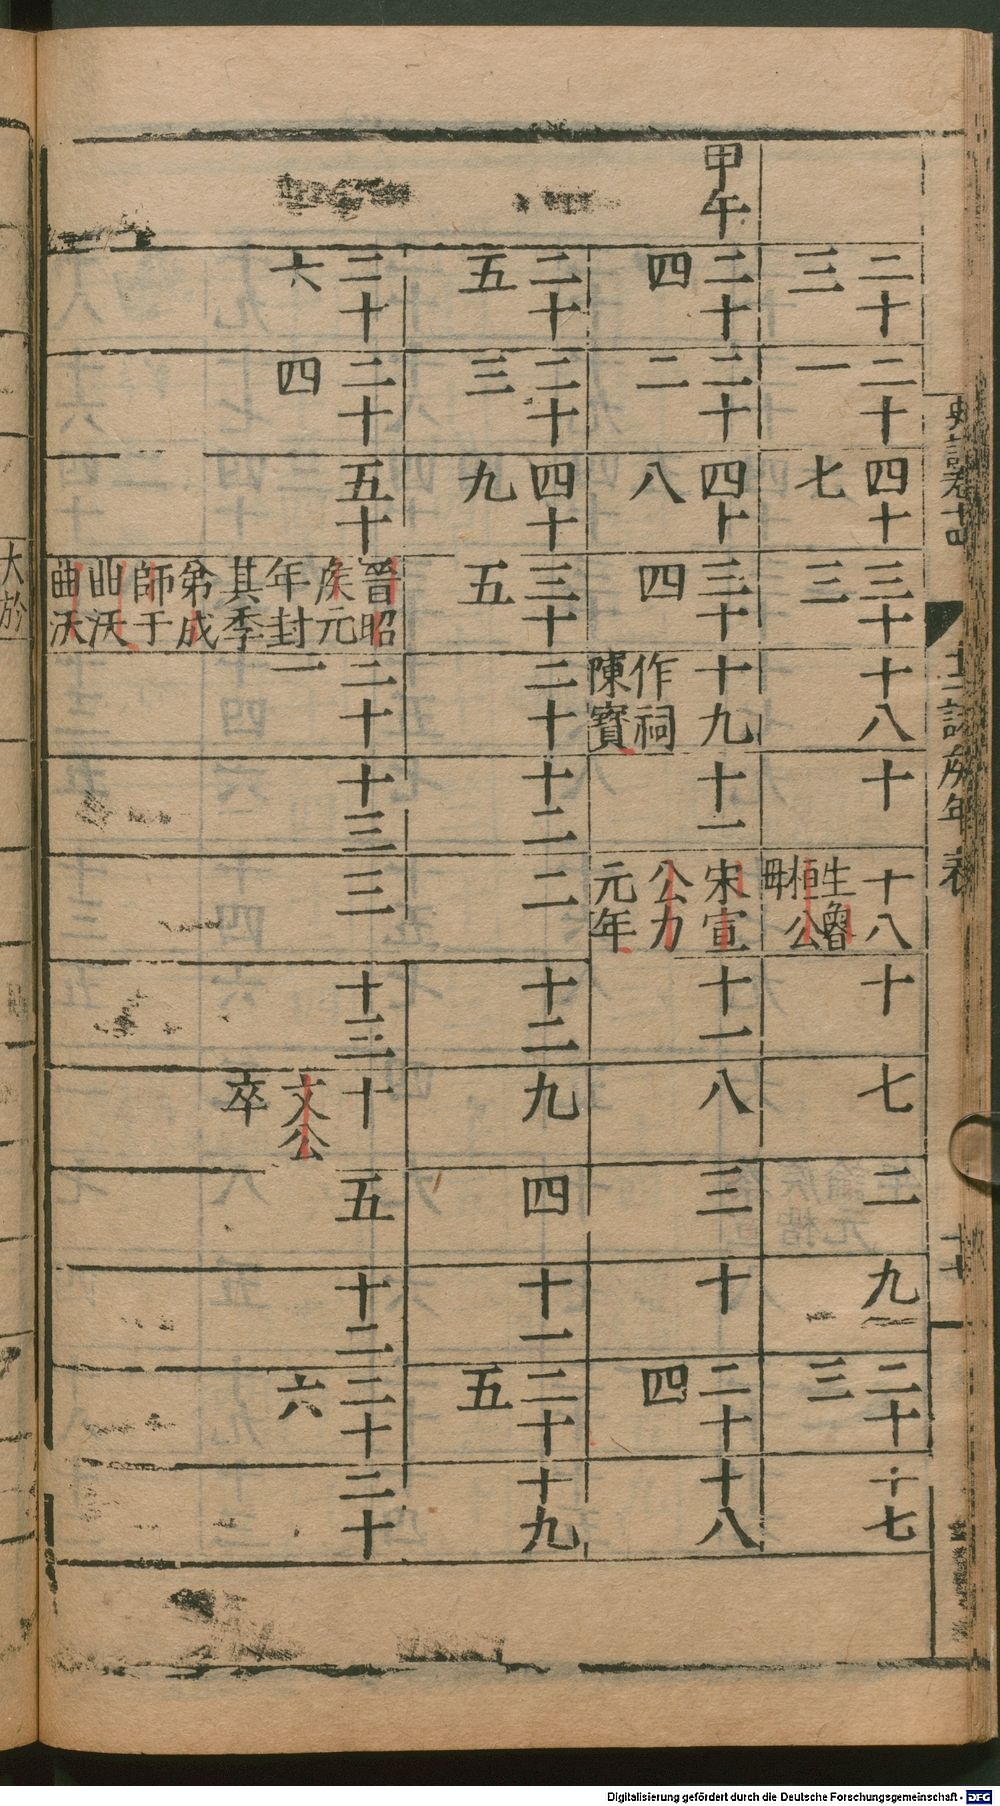 史記卷十四
十二諸侯年表
十七
二十三
二十一
四十七
三十三
十八
十
十八
生魯桓公母
十
七
二
九
二十三
十七
甲午
二十四
二十二
四十八
三十四
十九
作祠陳寶
十一
宋宣公力元年
十一
八
三
十
二十四
十八
二十五
二十三
四十九
三十五
二十
十二
二
十二
九
四
十一
二十五
十九
二十六
二十四
五十
晉昭侯元年封其季弟成師于曲沃曲沃
二十一
十三
三
十三
十
文公卒
五
十二
二十六
二十
大於
Digitalisierung gefördert durch die Deutsche Forschungsgemeinschaft - DFG